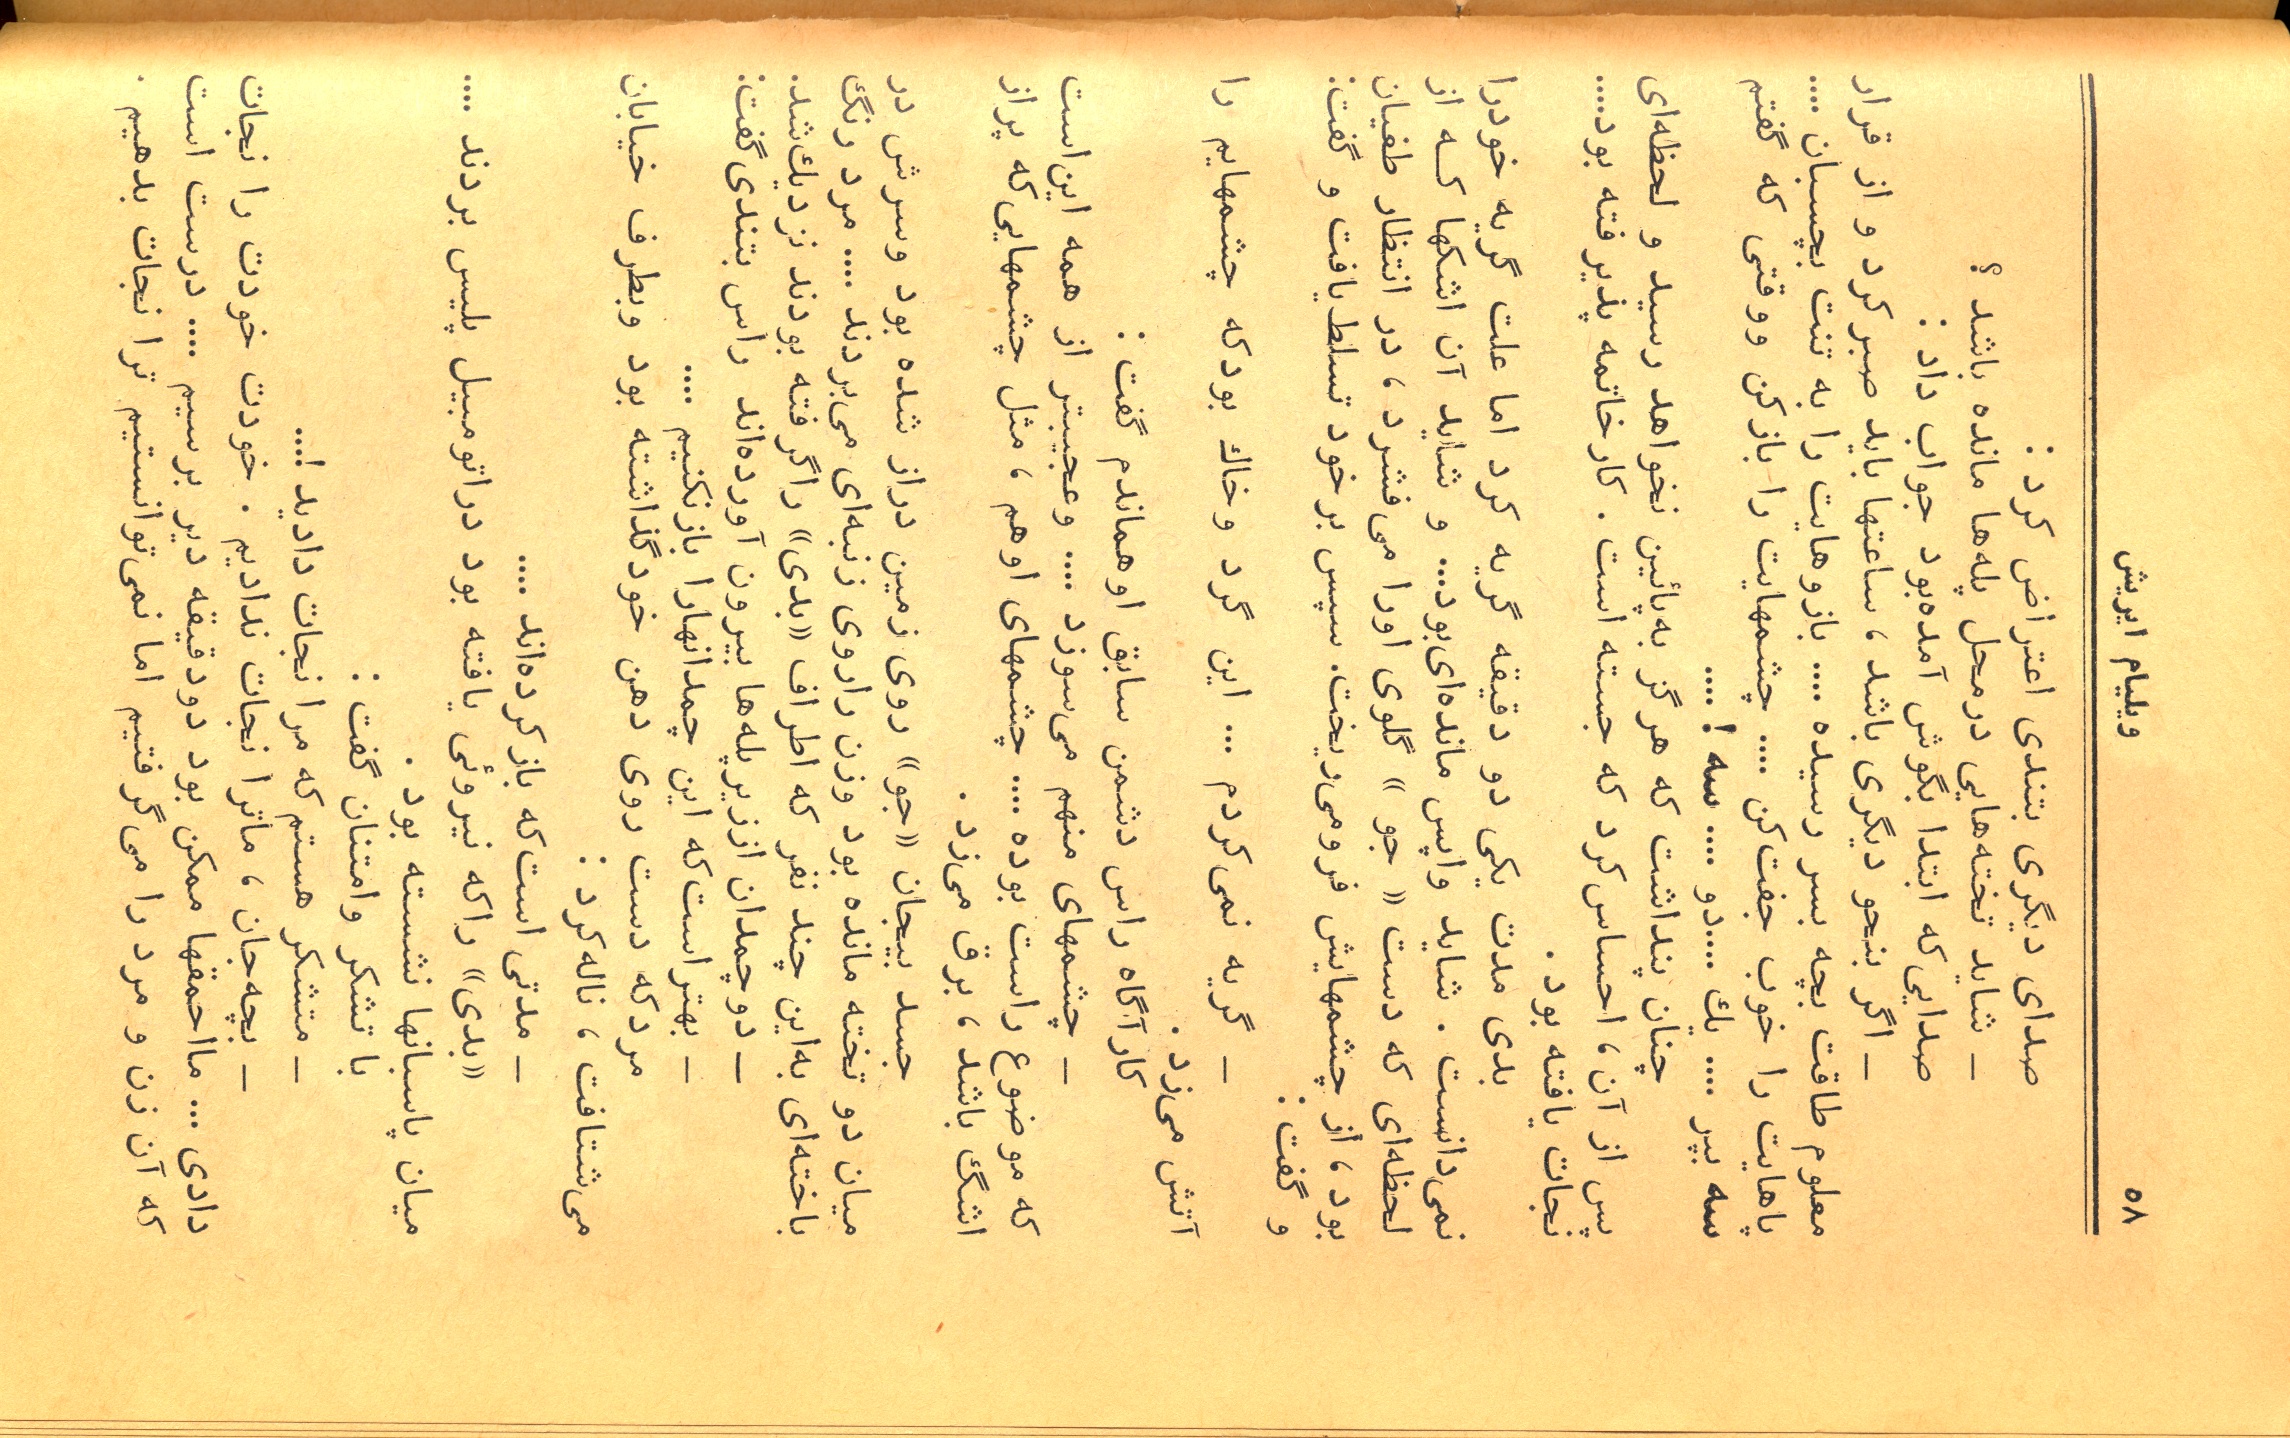 ۵۸
ویلیام ایریش
صدای دیگری بتندی اعتراض کرد :
ـ شاید تخته‌هایی درمحل پله‌ها مانده باشد ؟
صدایی‌که ابتدا بگوش آمده‌بود جواب داد :
ـ اگر بنحو دیگری باشد ، ساعتها باید صبر کرد و از قرار
معلوم طاقت بچه بسر رسیده .... بازوهایت را به تنت بچسبان ....
پاهایت را خوب جفت‌کن .... چشمهایت را بازکن ووقتی که گفتم
سه بپر .... یك ....دو .... سه ! ....
چنان پنداشت که هرگز به‌پائین نخواهد رسید و لحظه‌ای
پس از آن ، احساس‌کرد که جسته است . کارخاتمه پذیرفته بود....
نجات یافته بود .
بدی مدت یکی دو دقیقه گریه کرد اما علت گریه خودرا
نمی‌دانست . شاید واپس مانده‌ای‌بود... و شاید آن اشکها کـه از
لحظه‌ای که دست « جو » گلوی اورا می‌فشرد ، در انتظار طغیان
بود ، از چشمهایش فرومی‌ریخت. سپس برخود تسلط یافت و گفت:
و گفت :
ـ گریه نمی‌کردم ... این گرد وخاك بودکه چشمهایم را
آتش می‌زد .
کارآگاه راس دشمن سابق اوهماندم گفت :
ـ چشمهای منهم می‌سوزد .... وعجیبتر از همه این‌است
که موضوع راست بوده .... چشمهای اوهم ، مثل چشمهایی‌که پراز
اشگ باشد ، برق می‌زد .
جسد بیجان «جو» روی زمین دراز شده بود وسرش در
میان دو تخته مانده بود وزن راروی زنبه‌ای می‌بردند .... مرد رنگ
باخته‌ای به‌این چند نفر که اطراف «بدی» راگرفته بودند نزدیك‌شد.
ـ دوچمدان اززیرپله‌ها بیرون آورده‌اند راس بتندی‌گفت:
ـ بهتراست‌که این چمدانهارا بازنکنیم ....
مردکه دست روی دهن خودگذاشته بود وبطرف خیابان
می‌شتافت ، ناله‌کرد :
ـ مدتی است‌که بازکرده‌اند ....
«بدی» راکه نیروئی یافته بود دراتومبیل پلیس بردند ....
میان پاسبانها نشسته بود .
با تشکر وامتنان گفت :
ـ متشکر هستم‌که مرا نجات دادید !...
ـ بچه‌جان ، ماترا نجات ندادیم . خودت خودت را نجات
دادی ... مااحمقها ممکن بود دودقیقه دیر برسیم .... درست است
که آن زن و مرد را می‌گرفتیم اما نمی‌توانستیم ترا نجات بدهیم .